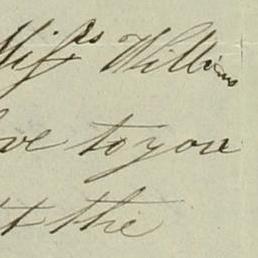 Miss Williams
ve to you
t the